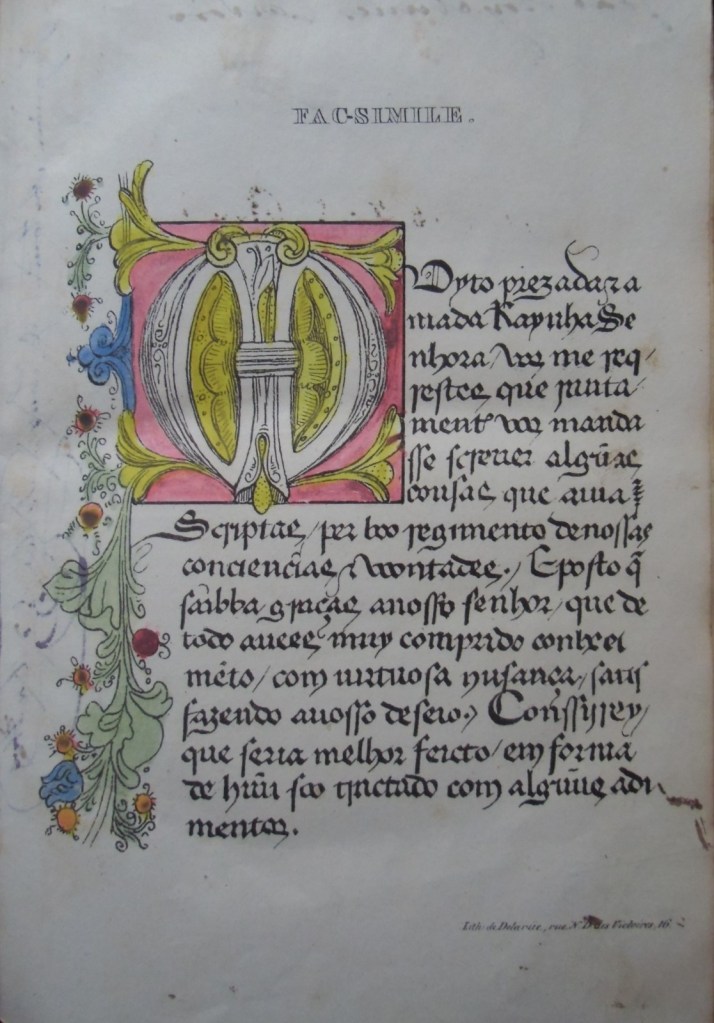 FAC-SIMILE.
M
Uyto prezada, z a
mada Raynha Se
nhora, vos me req
restes que junta
ment vos manda
sse screver algũas
cousas que avia
Scriptas, per boo regimento de nossas
conciencias, & voontades. E posto q̃
saibba, graças a nosso senhor, que de
todo avees muy comprido conhxei
mẽto, com virtuosa husança, satis
fazendo a vosso desejo, Conssijrey,
que seria melhor feicto, em forma
de hũu soo tractado com algũus adi
mentos.
Lith. de Delarue, rue N. D. des Victoires, 16.